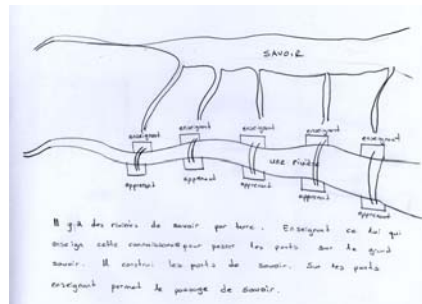 SAVOIR
enseignant
enseignant
enseignant
enseignant
enseignant
une rivière
apprenant
apprenant
apprenant
apprenant
apprenant
Il y a des rivières de savoir par terre. Enseignant ce lui qui
enseign cette connaissance pour passer les ponts sur le grand
savoir. Il construi les ponts de savoir. Sur les ponts
enseignant permet le passage de savoir.